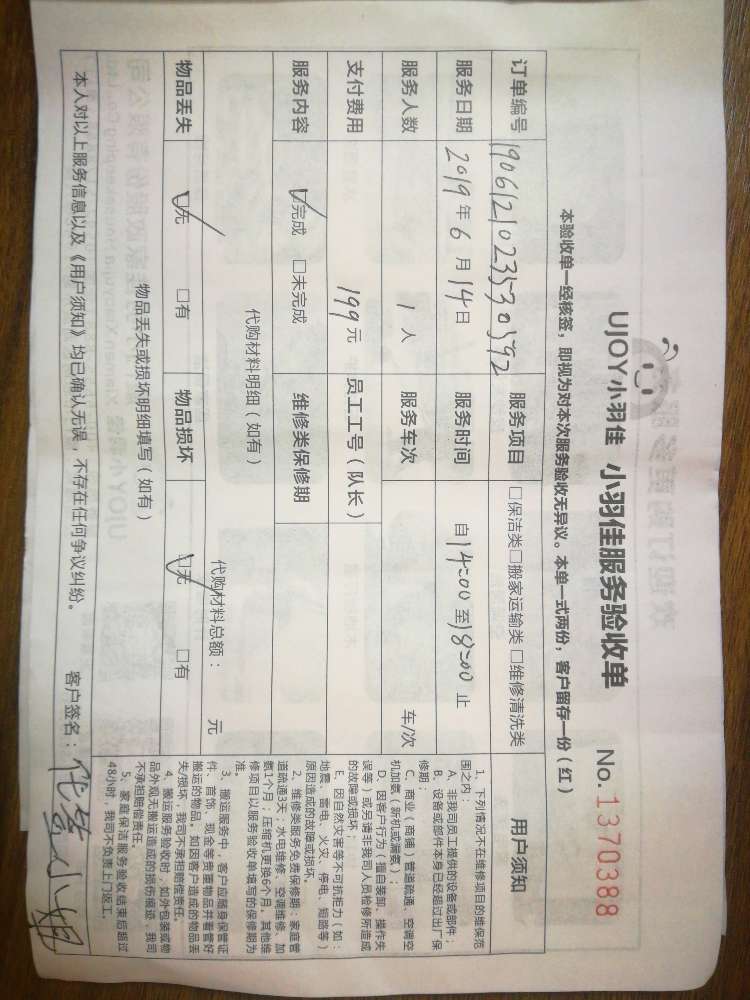 UJOY小羽佳 小羽佳服务验收单 No. 1370388
本验收单一经核签，即视为对本次服务验收无异议。本单一式两份，客户留存一份（红）
订单编号 服务项目 □保洁类□搬家运输类□维修清洗类
服务日期 2019 年 6 月 14 日 服务时间 自 14:00 至 18:00 止
服务人数 1 人 服务车次 车/次
支付费用 199 元 员工工号（队长）
服务内容 ☑完成 □未完成 维修类保修期
代购材料明细（如有） 代购材料总额： 元
物品丢失 ☑无 □有 物品损坏 ☑无 □有
物品丢失或损坏明细填写（如有）
本人对以上服务信息以及《用户须知》均已确认无误，不存在任何争议纠纷。 客户签名：
用户须知
1、下列情况不在维修项目的维保范
围之内：
A、非我司员工提供的设备或部件；
B、设备或部件本身已经超过出厂保
修期；
C、商业（商铺）管道疏通、空调空
机加氨（新机或漏氨）；
D、因客户行为（擅自装卸、操作失
误等）或另请非我司人员检修所造成
的故障或损坏；
E、因自然灾害等不可抗拒力（如：
地震、雷电、火灾、停电、短路等）
原因造成的故障或损坏。
2、维修类服务免费保修期：家庭管
道疏通3天，水电维修、空调维修、加
氨1个月，压缩机更换6个月，其他维
修项目以服务验收单填写的保修期为
准。
3、搬运服务中，客户应随身保管证
件、首饰、现金等贵重物品并看管好
搬运的物品。如因客户造成的物品丢
失/损坏，我司不承担赔偿责任。
4、搬运服务验收时，如外包装或物
品外观无搬运造成的损伤痕迹，我司
不承担赔偿责任。
5、家庭保洁服务验收结束后超过
48小时，我司不负责上门返工。